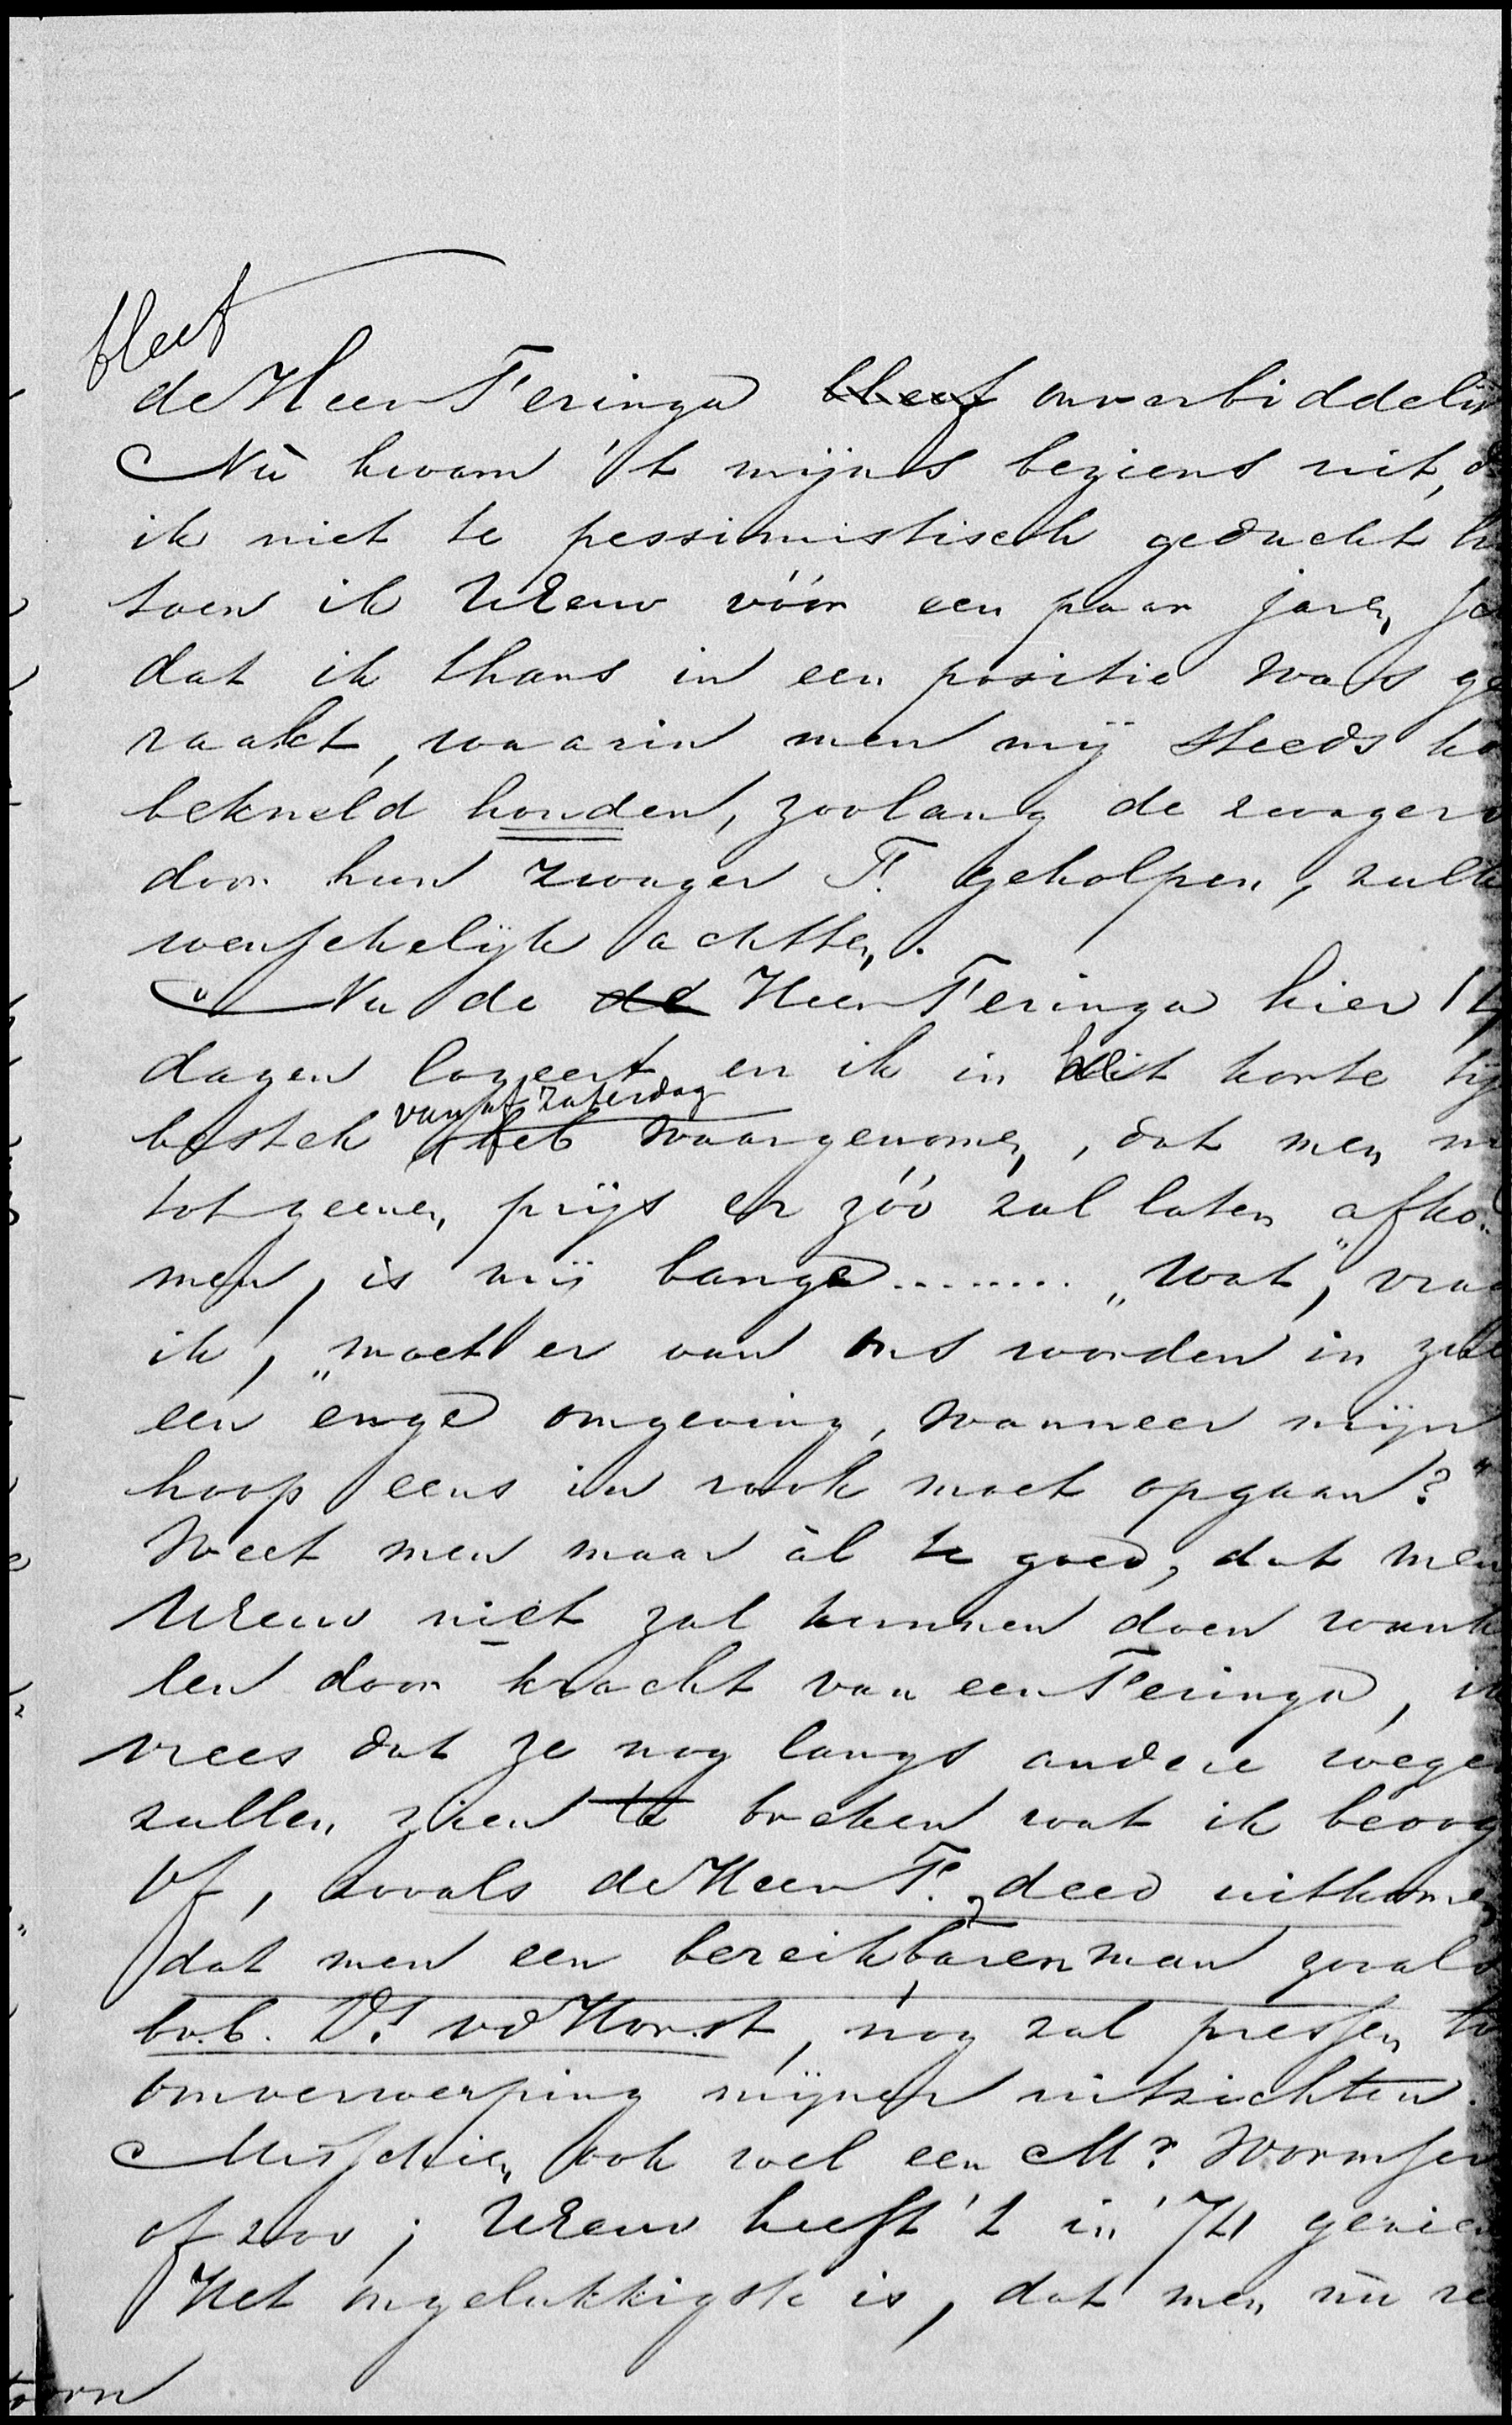 bleef
de Heer Feringa ~~bleef~~ onverbiddelij
Nù kwam 't mijns beziens uit, d
ik niet te pessimistisch gedacht h
toen ik UEerw vóór een paar jaren
dat ik thans in een positie was ge
raakt, waarin men mij steeds ko
bekneld houden, zoolang de zwagers
door hun zwager F. geholpen, zulk
wenschelijk achtten.
Nu de ~~de~~ Heer Feringa hier 14
dagen logeert en ik in dit korte tij
vanaf Zaterdag
bestek heb waargenomen, dat men m
tot geenen prijs er zóó zal laten „afko-
men, is mij bange........ „Wat," vraa
ik, „moet er van ons worden in zulk
een enge omgeving, wanneer mijn
hoop eens in rook moet opgaan?"
Weet men maar àl te goed, dat men
UEerw niet zal kunnen doen wank
len door kracht van een Feringa, ik
vrees dat ze nog langs andere wegen
zullen zien ~~te~~ breken wat ik beoog
Of, zooals de Heer F. deed uitkomen,
dat men een bereikbaren man zooals
bv.b. Ds. vd Horst, nog zal pressen to
omverwerping mijner uitzichten.
Misschien ook wel een Mr. Wormser
of zoo; UEerw heeft 't in '74 gezien
Het ongelukkigste is, dat men nù re
toorn